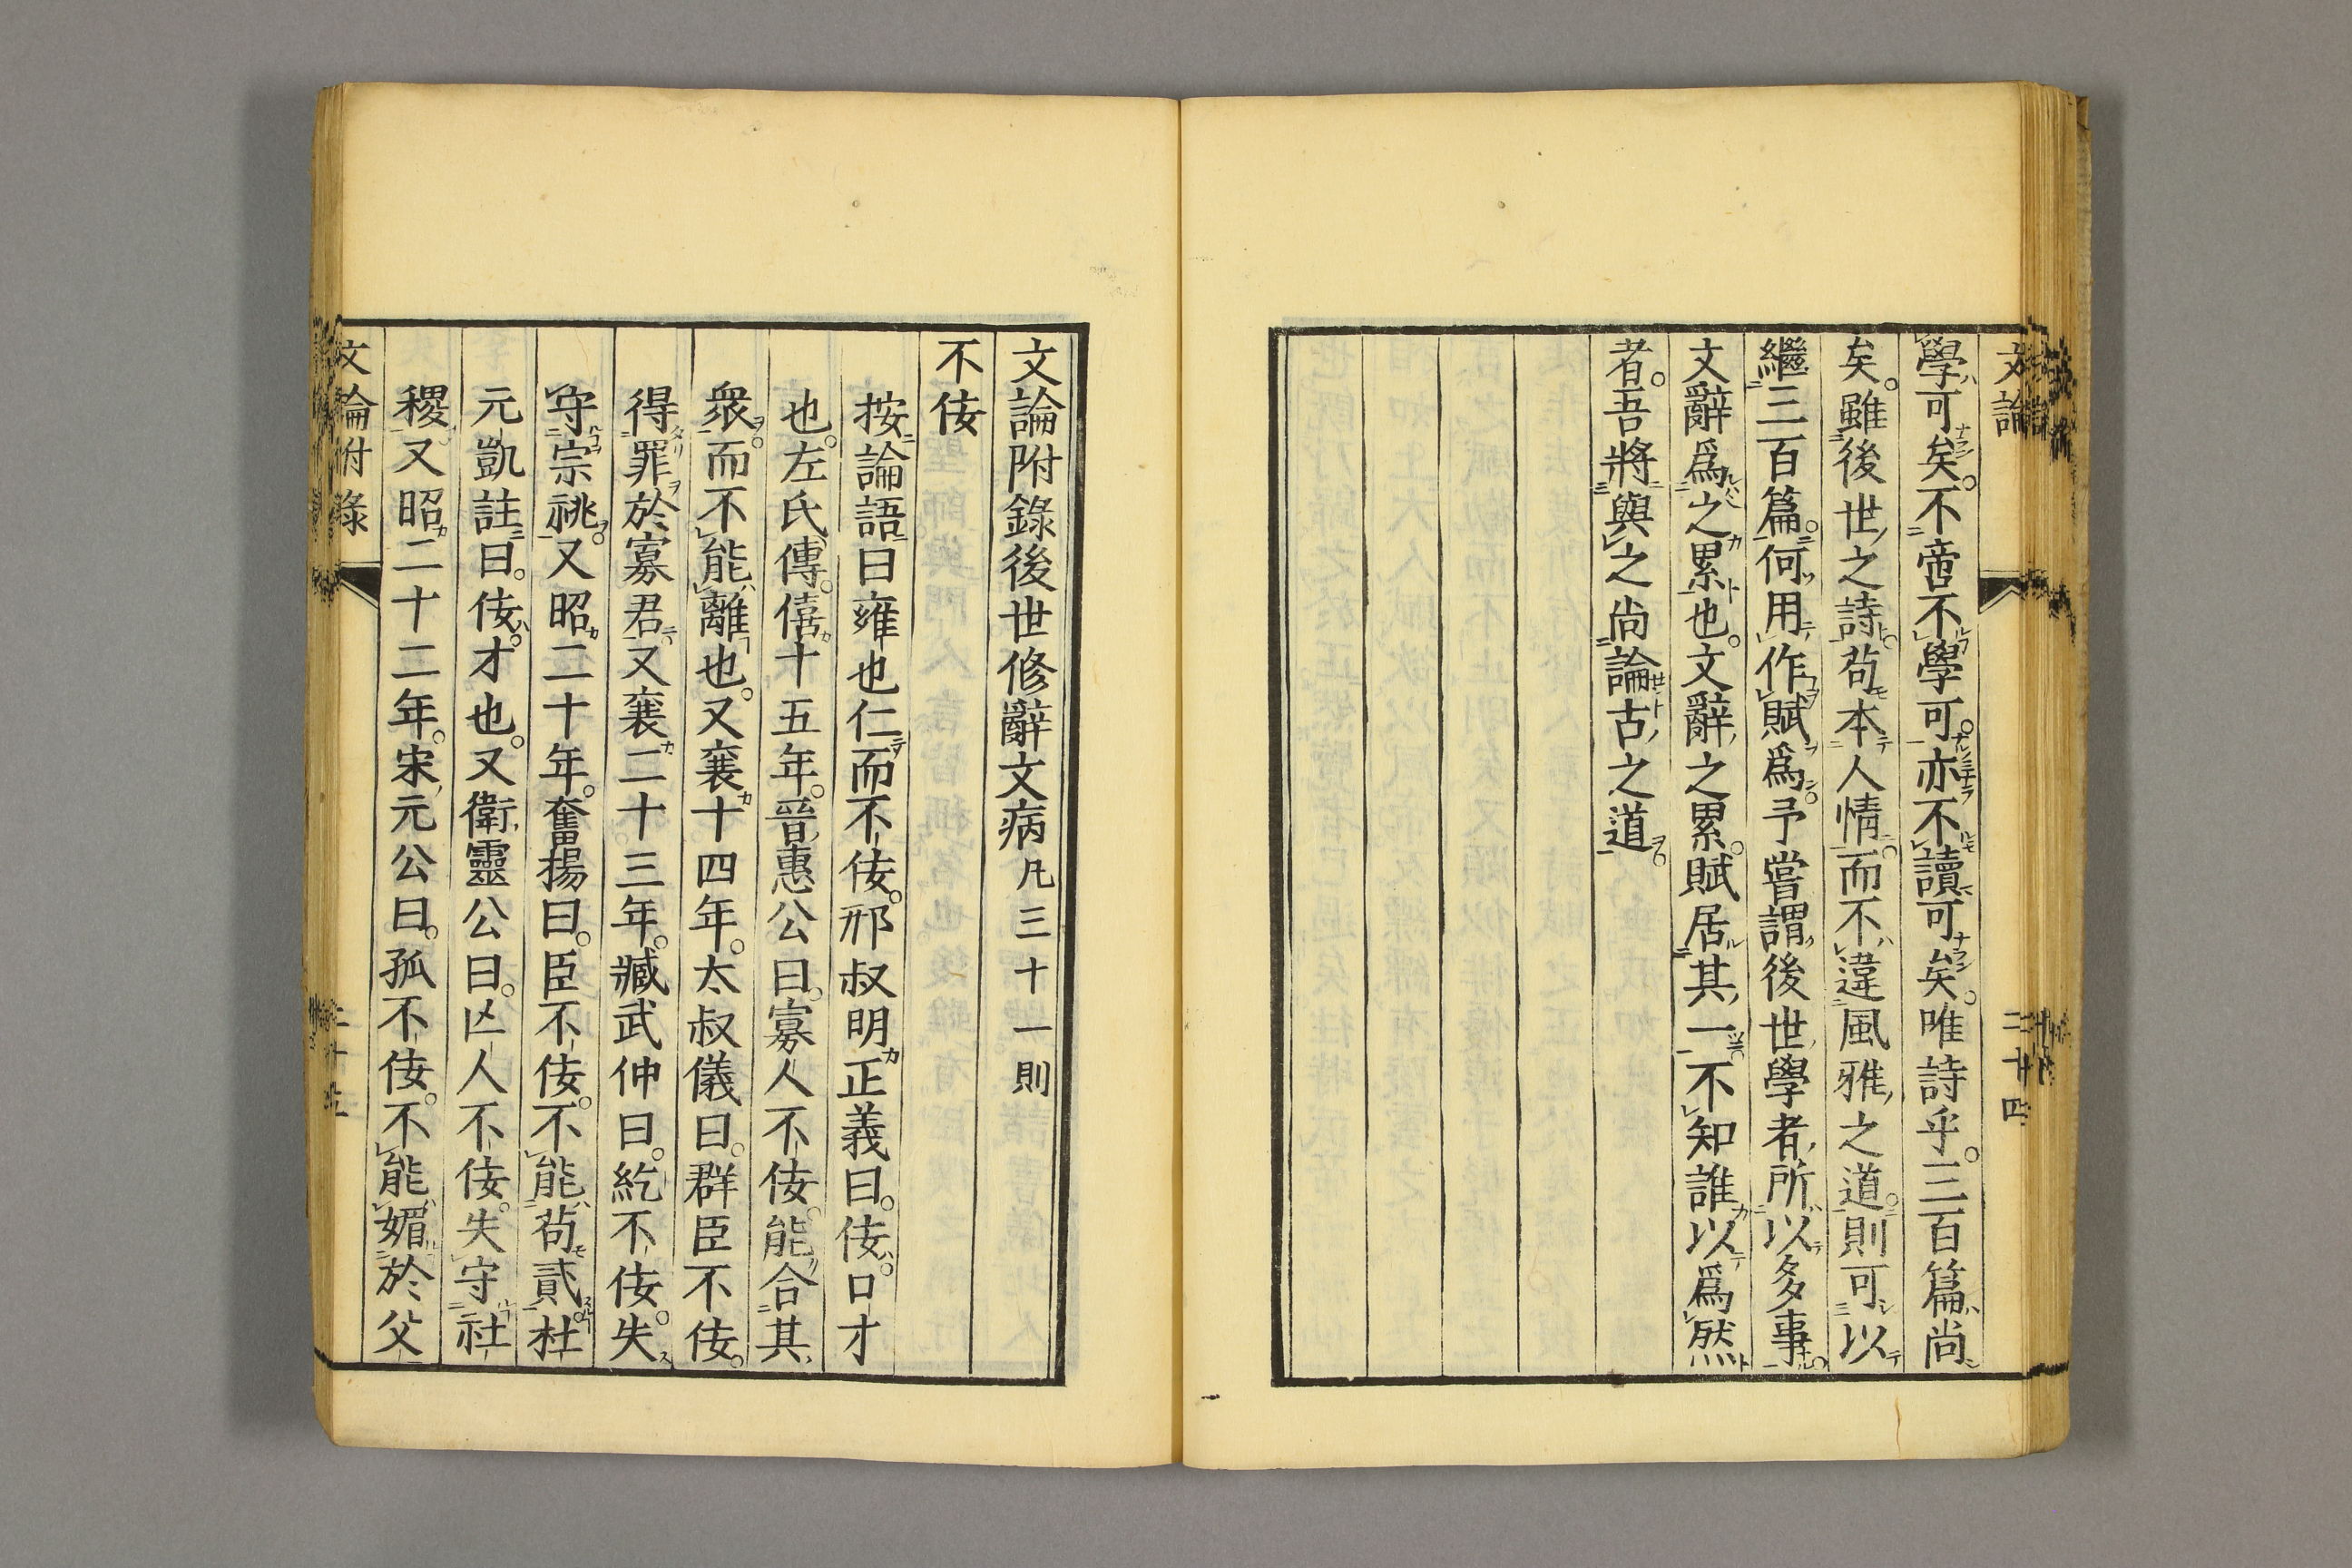 文論
二十四
學可矣。不啻不學可。亦不讀可矣。唯詩乎。三百篇尚
矣。雖後世之詩。苟本人情。而不違風雅之道。則可以
繼三百篇。何用作賦爲。予嘗謂後世學者所以多事。
文辭爲之累也。文辭之累。賦居其一。不知誰以爲然
者。吾將與之尚論古之道。
文論附錄後世修辭文病凡三十一則
不佞
按論語曰雍也仁而不佞。邢叔明正義曰。佞。口才
也。左氏傳。僖十五年。晉惠公曰。寡人不佞。能合其
衆。而不能離也。又襄十四年。太叔儀曰。群臣不佞。
得罪於寡君。又襄二十三年。臧武仲曰。紇不佞。失
守宗祧。又昭二十年。奮揚曰。臣不佞。不能苟貳。杜
元凱註曰。佞。才也。又衛靈公曰。亡人不佞。失守社
稷。又昭二十二年。宋元公曰。孤不佞。不能媚於父
文論附錄
二十五